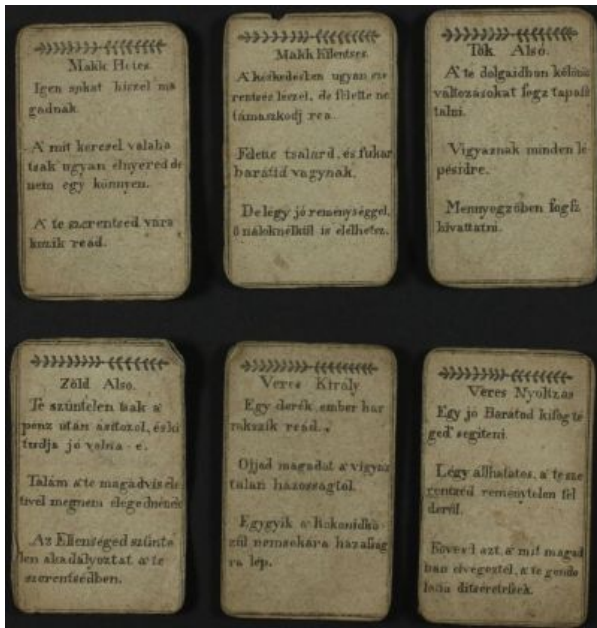 Makk Hetes
Igen sokat hiszel ma
gadnak.
A' mit keresel valaha
tsak ugyan elnyered de
nem egy könnyen.
A' te szerentséd vára
kozik reád.
Makk Kilentses
A' kereskedésben ugyan sze
rentsés lészel, de felette ne
támaszkodj rea.
Felette tsalárd, és fukar
barátid vagynak.
De légy jó reménységgel,
ő náloknélkül is élelhetsz.
Tök Alsó.
A' te dolgaidban külömb
változásokat fogsz tapasz
talni.
Vigyáznak minden lé
pésidre.
Mennyegzőben fogsz
hivattatni.
Zöld Alsó.
Te szüntelen tsak a'
pénz után ásítozol, és ki
tudja jó vólna-é.
Talám a' te magad vise
tivel megnem elégednének
Az Ellenséged szünte
len akadályoztat a' te
szerentsédben.
Veres Király
Egy derék ember har
rakszik reád.
Ojjad magadat a' vigyáz
talan házosságtól.
Egygyik a' Rokonidkö
zűl nemsokára házasság
ra lép.
Veres Nyoltzas
Egy jó Barátod kifog té
ged segíteni.
Légy állhatatos, a' te sze
rentséd reménytelen fel
derűl.
Kövesd azt a' mit magad
ban elvégeztél, a' te gondo
latid ditséretesek.